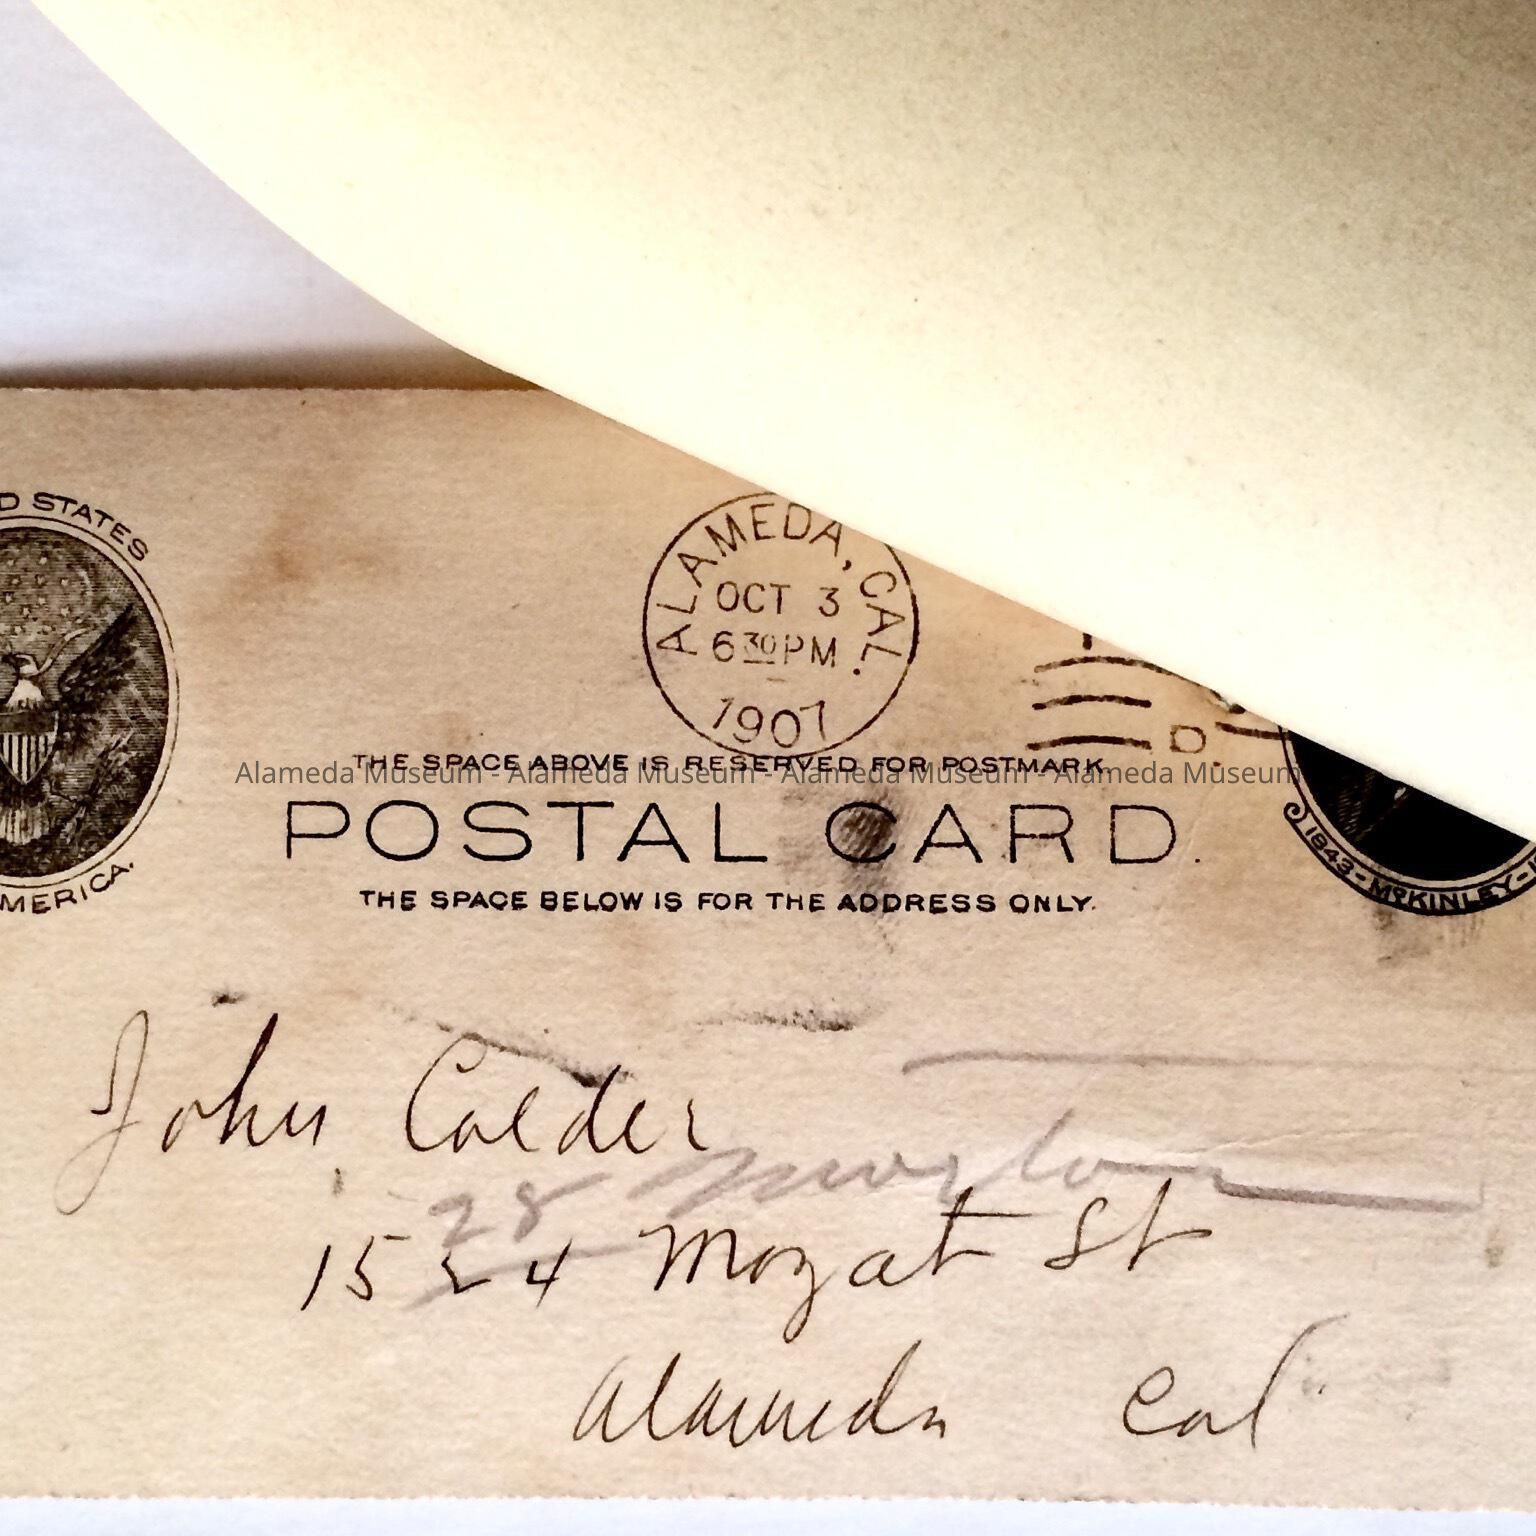 D STATES
MERICA.
ALAMEDA, CAL.
OCT 3
6 30 PM
1907
D
THE SPACE ABOVE IS RESERVED FOR POSTMARK.
Alameda Museum - Alameda Museum - Alameda Museum - Alameda Museum
POSTAL CARD.
THE SPACE BELOW IS FOR THE ADDRESS ONLY.
1843 - McKINLEY -
John Calder
28
1524 Mozat St
Alameda Cal